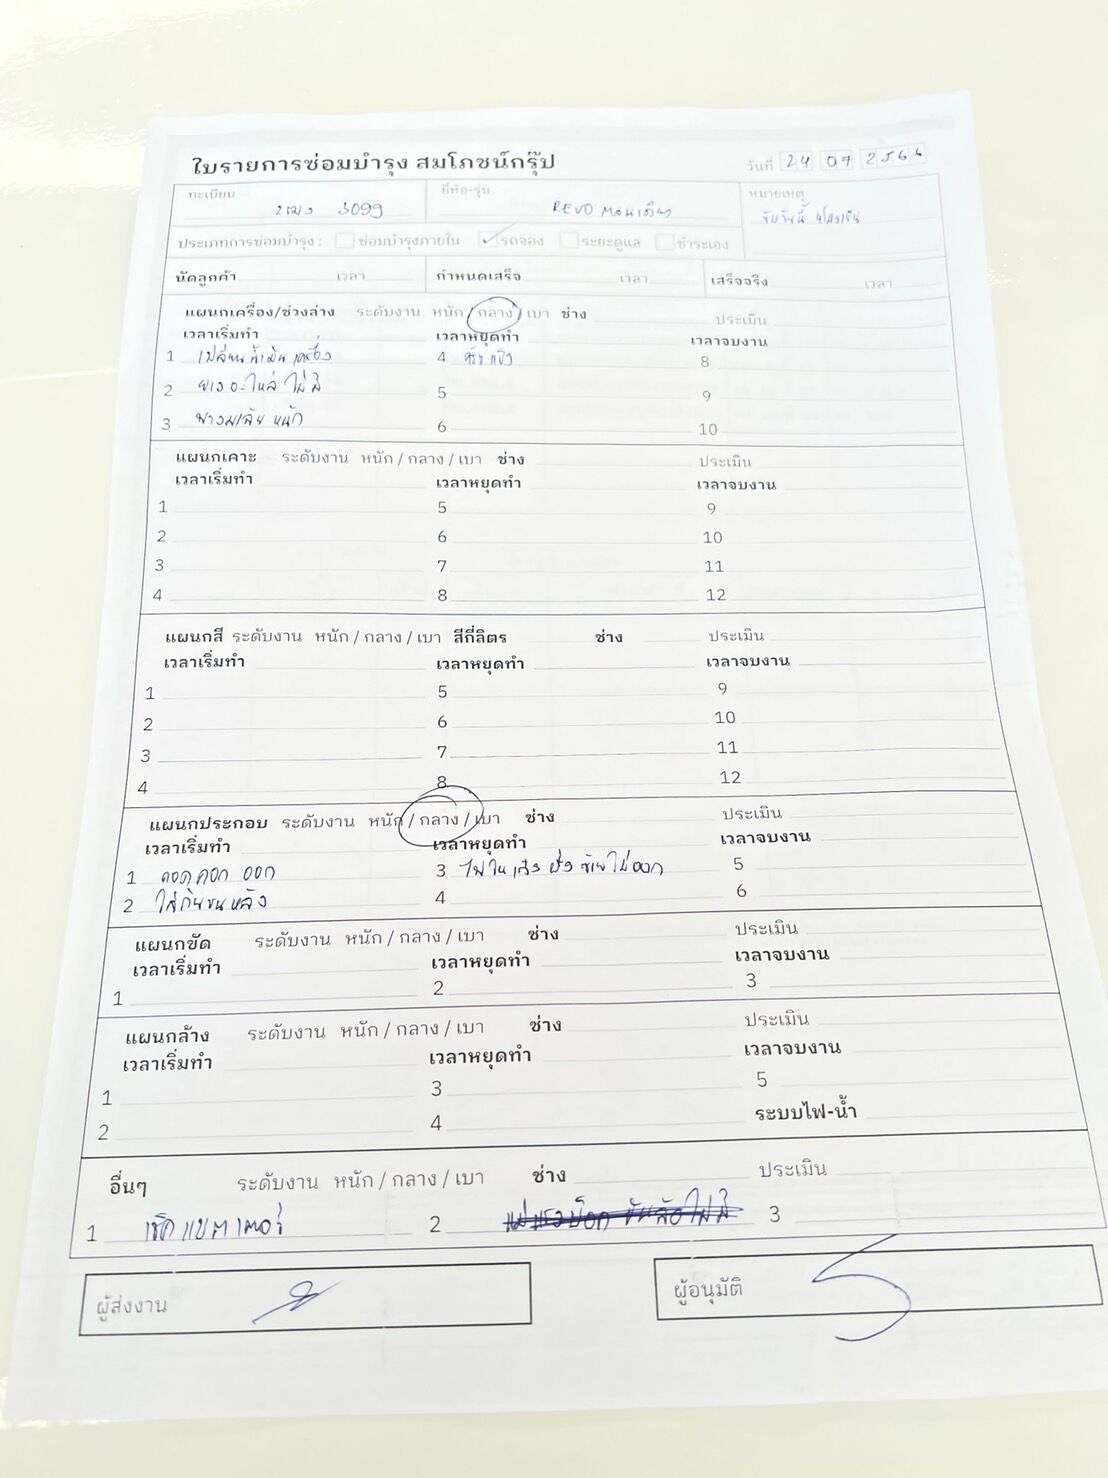 ใบรายการซ่อมบำรุง สมโภชน์กรุ๊ป
วันที่ 24 07 2566
ทะเบียน 3099
ยี่ห้อ-รุ่น REVO ตอนเดียว
หมายเหตุ รับวันนี้ 4โมงเย็น
ประเภทการซ่อมบำรุง : ซ่อมบำรุงภายใน ✓ รถจอง ระยะดูแล ชำระเอง
นัดลูกค้า เวลา กำหนดเสร็จ เวลา เสร็จจริง เวลา
แผนกเครื่อง/ช่วงล่าง ระดับงาน หนัก / กลาง / เบา ช่าง ประเมิน
เวลาเริ่มทำ เวลาหยุดทำ เวลาจบงาน
1 เปลี่ยนน้ำมันเครื่อง 4 8
2 ยางอะไหล่ไม่มี 5 9
3 พวงมาลัยหนัก 6 10
แผนกเคาะ ระดับงาน หนัก / กลาง / เบา ช่าง ประเมิน
เวลาเริ่มทำ เวลาหยุดทำ เวลาจบงาน
1 5 9
2 6 10
3 7 11
4 8 12
แผนกสี ระดับงาน หนัก / กลาง / เบา สีกี่ลิตร ช่าง ประเมิน
เวลาเริ่มทำ เวลาหยุดทำ เวลาจบงาน
1 5 9
2 6 10
3 7 11
4 8 12
แผนกประกอบ ระดับงาน หนัก / กลาง / เบา ช่าง ประเมิน
เวลาเริ่มทำ เวลาหยุดทำ เวลาจบงาน
1 ถอดคอกออก 3 ไฟในเก๋งฝั่งซ้ายไม่ออก 5
2 ใส่กันชนหลัง 4 6
แผนกขัด ระดับงาน หนัก / กลาง / เบา ช่าง ประเมิน
เวลาเริ่มทำ เวลาหยุดทำ เวลาจบงาน
1 2 3
แผนกล้าง ระดับงาน หนัก / กลาง / เบา ช่าง ประเมิน
เวลาเริ่มทำ เวลาหยุดทำ เวลาจบงาน
1 3 5
2 4 ระบบไฟ-น้ำ
อื่นๆ ระดับงาน หนัก / กลาง / เบา ช่าง ประเมิน
1 เช็คแบตเตอร์ 2 3
ผู้ส่งงาน ผู้อนุมัติ